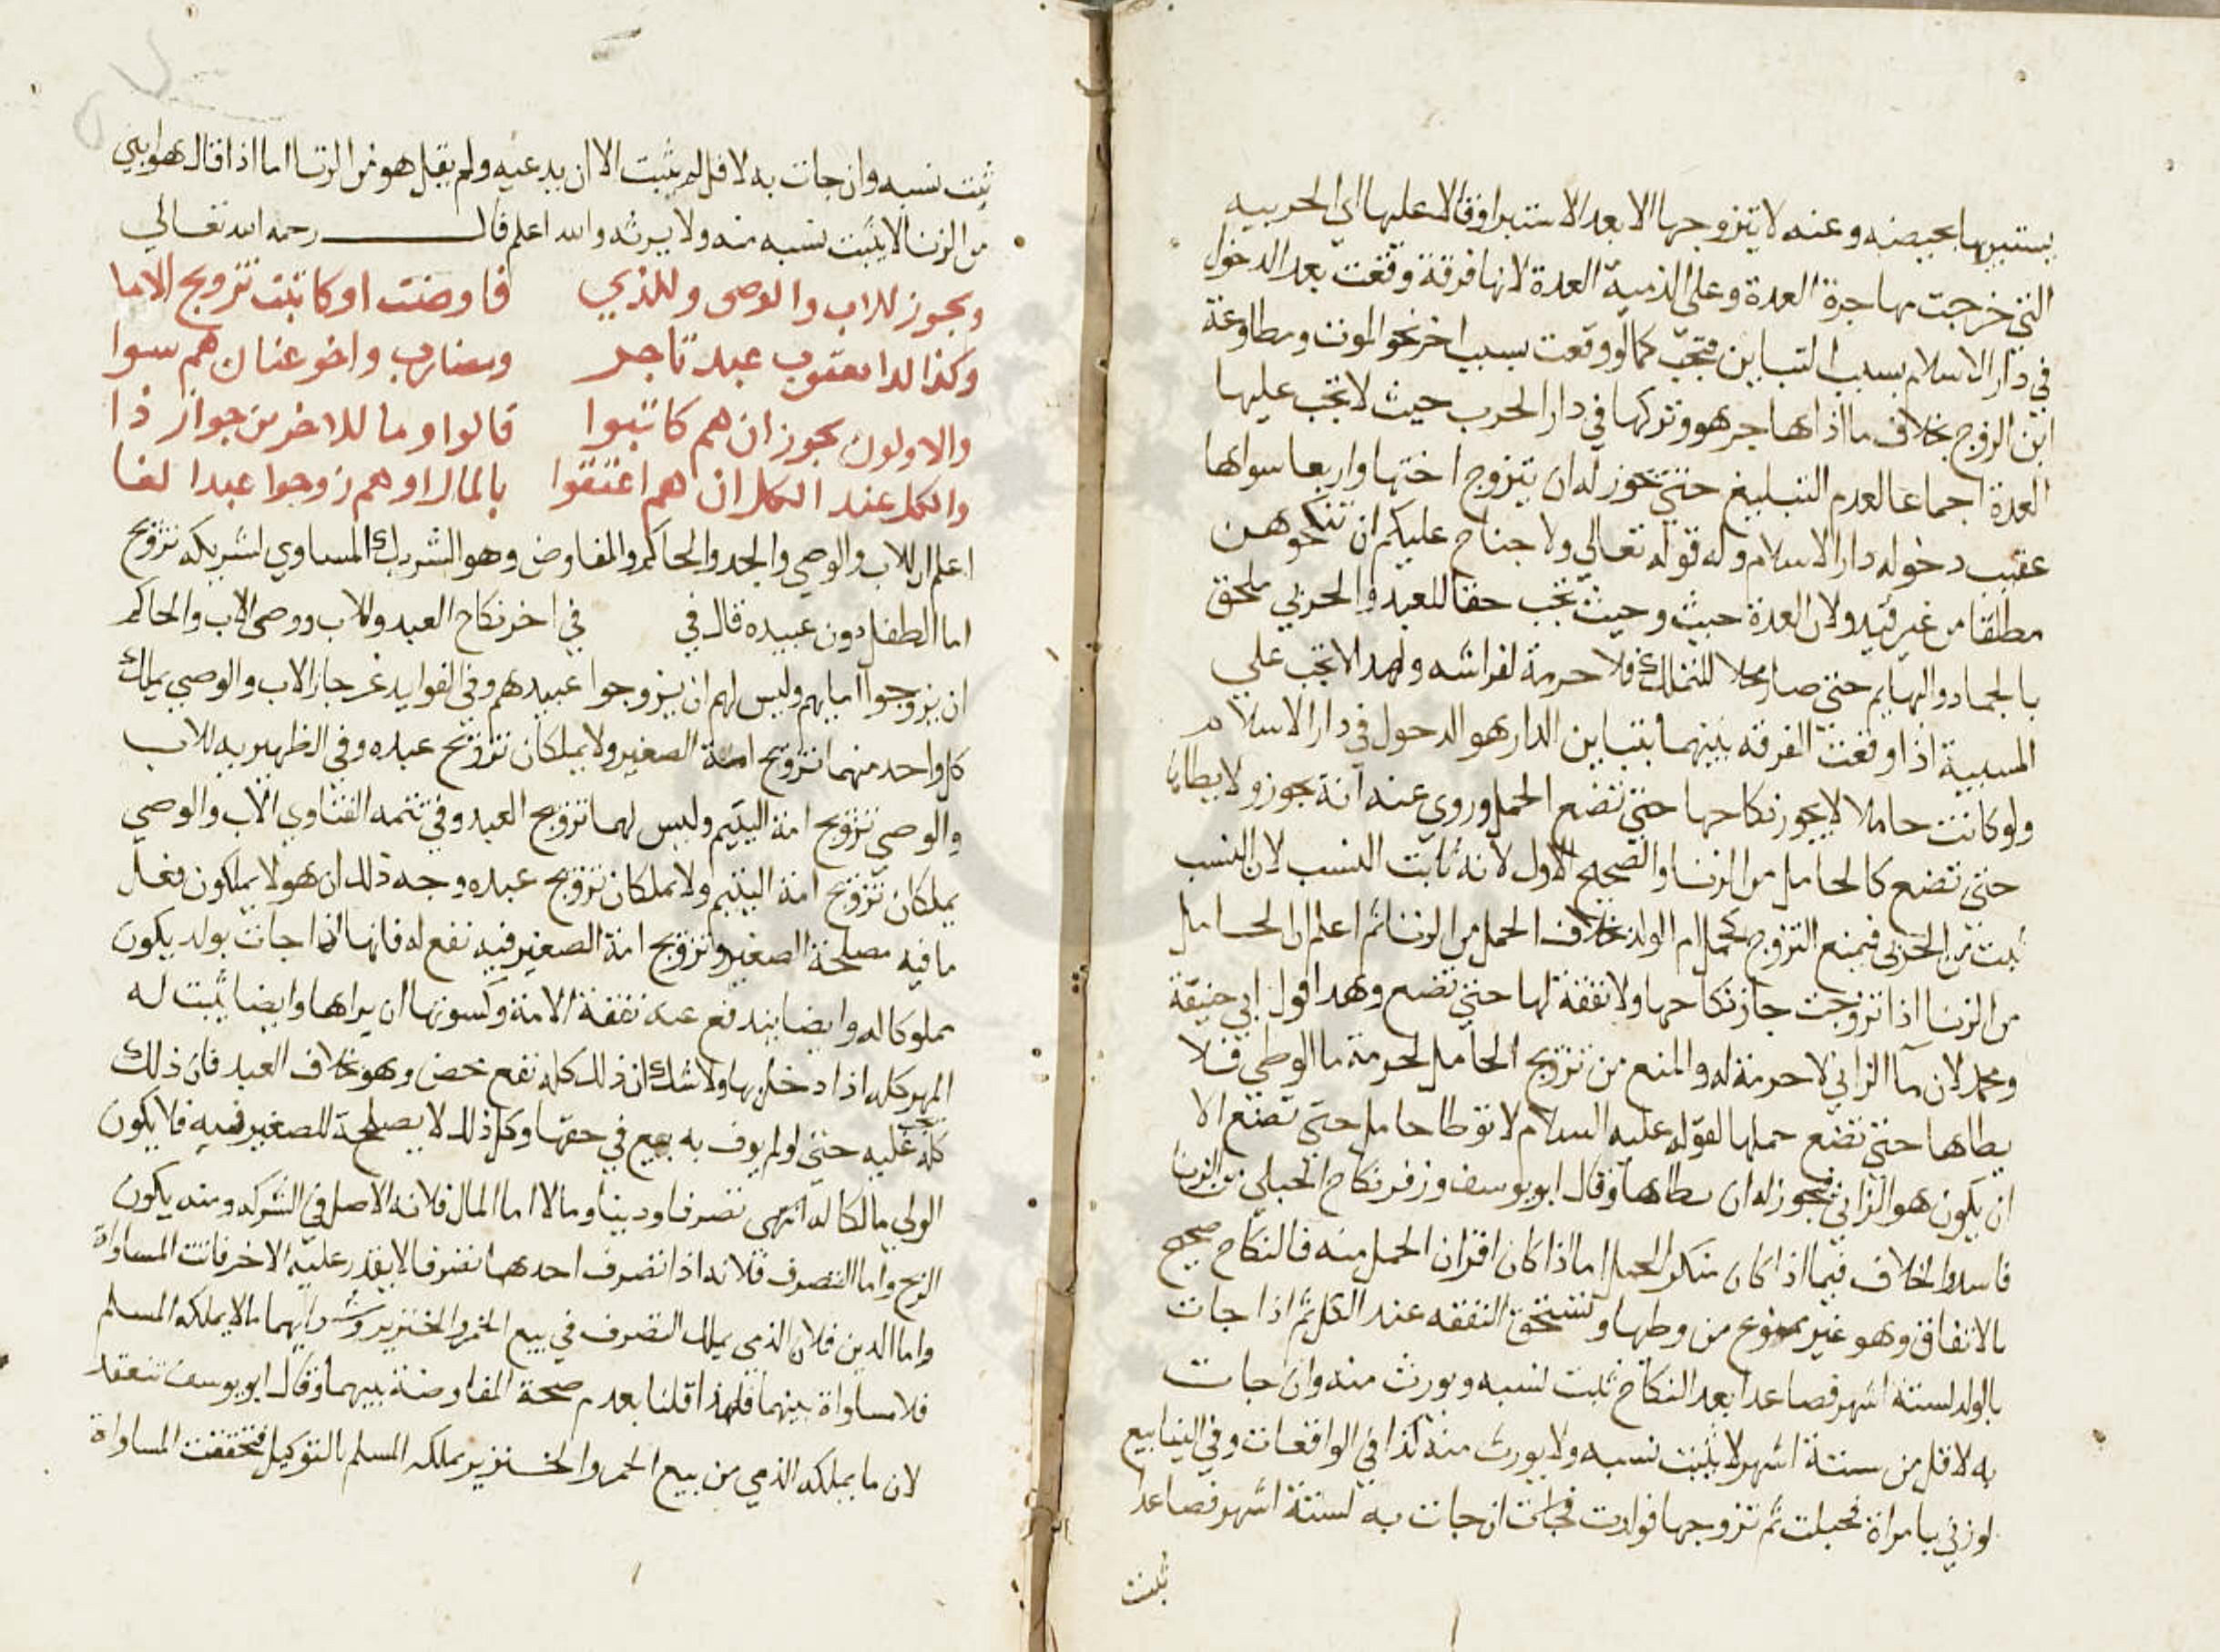 يستبريها بحيضه وعنه لا يتزوجها الا بعد الاستبرا وقالا عليها اي الحربيه
التي خرجت مهاجرة العدة وعلى الذمية العدة لانها فرقة وقعت بعد الدخول
في دار الاسلام بسبب التباين فتجب كما لو وقعت بسبب اخر نحو الموت ومطاوعة
ابن الزوج بخلاف ما اذا هاجر هو وتركها في دار الحرب حيث لا تجب عليها
العدة اجماعا لعدم التبليغ حتى يجوز له ان يتزوج اختها واربعا سواها
عقيب دخوله دار الاسلام وله قوله تعالى ولا جناح عليكم ان تنكحوهن
مطلقا من غير قيد ولان العدة حيث وحيث تجب حقا للعبد والحربي ملحق
بالجماد والبهايم حتى صار محلا للتملك فلا حرمة لفراشه ولهذا لا تجب على
المسبية اذا وقعت الفرقه بينهما بتباين الدار هو الدخول في دار الاسلام
ولو كانت حاملا لا يجوز نكاحها حتى تضع الحمل وروي عنه انه يجوز ولا يطاها
حتى تضع كالحامل من الزنا والصحيح الاول لانه ثابت النسب لان النسب
ثبت من الحربي فيمنع التزوج كحمل ام الولد بخلاف الحمل من الزنا ثم اعلم ان الحامل
من الزنا اذا تزوجت جاز نكاحها ولا نفقة لها حتى تضع وهذا قول ابي حنيفة
ومحمد لان ما الزاني لا حرمة له والمنع من تزويج الحامل لحرمة ما الوطي فلا
يطاها حتى تضع حملها لقوله عليه السلام لا توطا حامل حتى تضع الا
ان يكون هو الزاني فيجوز له ان يطاها وقال ابو يوسف وزفر نكاح الحبلي من الزنا
فاسد والخلاف فيما اذا كان منكر الحمل اما اذا كان اقران الحمل منه فالنكاح صحيح
بالاتفاق وهو غير ممنوع من وطيها وتستحق النفقه عند الكل ثم اذا جات
بالولد لستة اشهر فصاعدا بعد النكاح ثبت نسبه ويورث منه وان جات
به لاقل من ستة اشهر لا يثبت نسبه ولا يورث منه كذا في الواقعات وفي الينابيع
لو زنى بامراة فحبلت ثم تزوجها فولدت ان جات به لستة اشهر فصاعدا
ثبت
ثبت نسبه وان جات به لاقل لم يثبت الا ان يدعيه ولم يقل هو من الزنا اما اذا قال هو ابني
من الزنا لا يثبت نسبه منه ولا يرثه والله اعلم قال رحمه الله تعالى
ويجوز للاب والوصى وللذي فاوضت او كاتبت تزويج الاما
وكذا لدا يعقوب عبد تاجر ومضارب واخو عنان هم سوا
والاولون يجوز ان هم كاتبوا قالوا وما للاخرين جواز ذا
والكل عند الكل ان هم اعتقوا بالمال او هم زوجوا عبدا لغا
اعلم ان للاب والوصي والجد والحاكم والمفاوض وهو الشريك المساوي لشريكه تزويج
اما الطفل دون عبيده قال في في اخر نكاح العبد وللاب ووصى الاب والحاكم
ان يزوجوا امايهم وليس لهم ان يزوجوا عبيدهم وفي الفوايد الاب والوصي يملك
كل واحد منهما تزويج امة الصغير ولا يملكان تزويج عبده وفي الظهيريه للاب
والوصي تزويج امة اليتيم وليس لهما تزويج العبد وفي تتمه الفتاوي الاب والوصي
يملكان تزويج امة اليتيم ولا يملكان تزويج عبده وجه ذلك ان هولا يملكون فعل
ما فيه مصلحة الصغير وتزويج امة الصغير فيه نفع له فانها اذا جات بولد يكون
مملوكا له وايضا يندفع عنه نفقة الامة وكسوتها ان يراها وايضا ثبت له
المهر كله اذا دخل بها ولا شك ان ذلك كله نفع محض وهو بخلاف العبد فان ذلك
كله يجب عليه حتى لو لم يوف به بيع في حقها وكل ذلك لا يصلحة للصغير فيه فلا يكون
الولي مالكا له انتهى تصرفا ودينا ومالا اما المال فلانه الاصل في الشركه ومنه يكون
الربح واما التصرف فلانه اذا تصرف احدهما تصرفا لا يقدر عليه الاخر فاتت المساواة
واما الدين فلان الذمي يملك التصرف في بيع الخمر والخنزير وشرايهما ما لا يملكه المسلم
فلا مساواة بينهما فلهذا قلنا بعدم صحة المفاوضة بينهما وقال ابو يوسف تنعقد
لان ما يملكه الذمي من بيع الخمر والخنزير يملكه المسلم بالتوكيل فتحققت المساواة